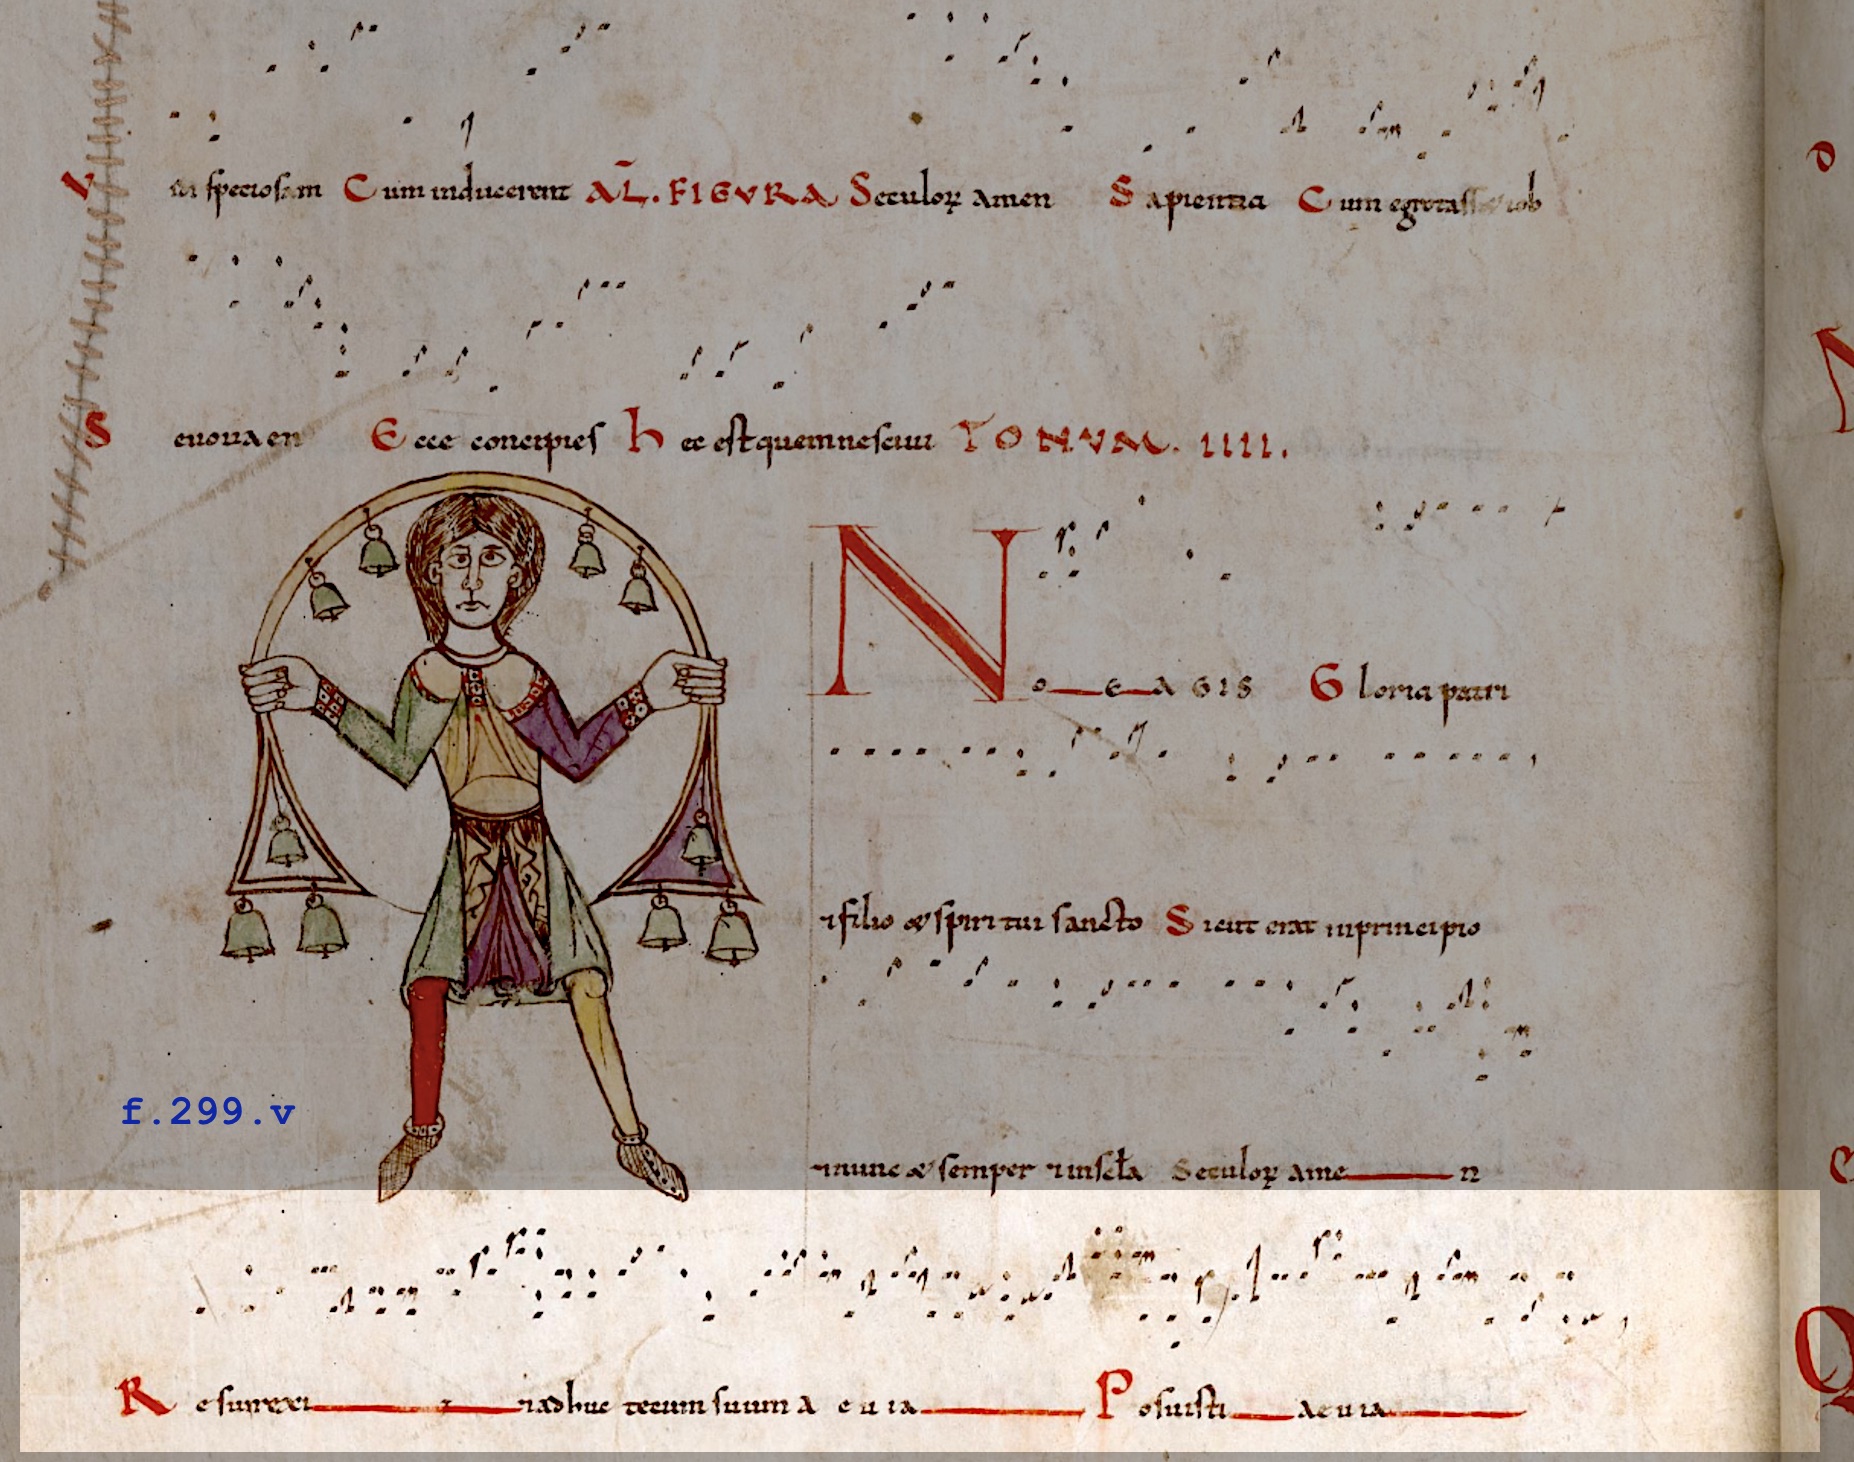 V idi speciosam Cum inducerent AL. FIGVRA Seculoꝝ amen Sapientia Cum egrotasset iob
S euouaen Ecce concipies hec est quem nesciui TONVM. IIII.
NO E A GIS Gloria patri
& filio & spiritui sancto Sicut erat in principio
& nunc & semper & in scła Seculoꝝ amen
f.299.v
Resurrexi & adhuc tecum sum A e u ia Posuisti aeuia